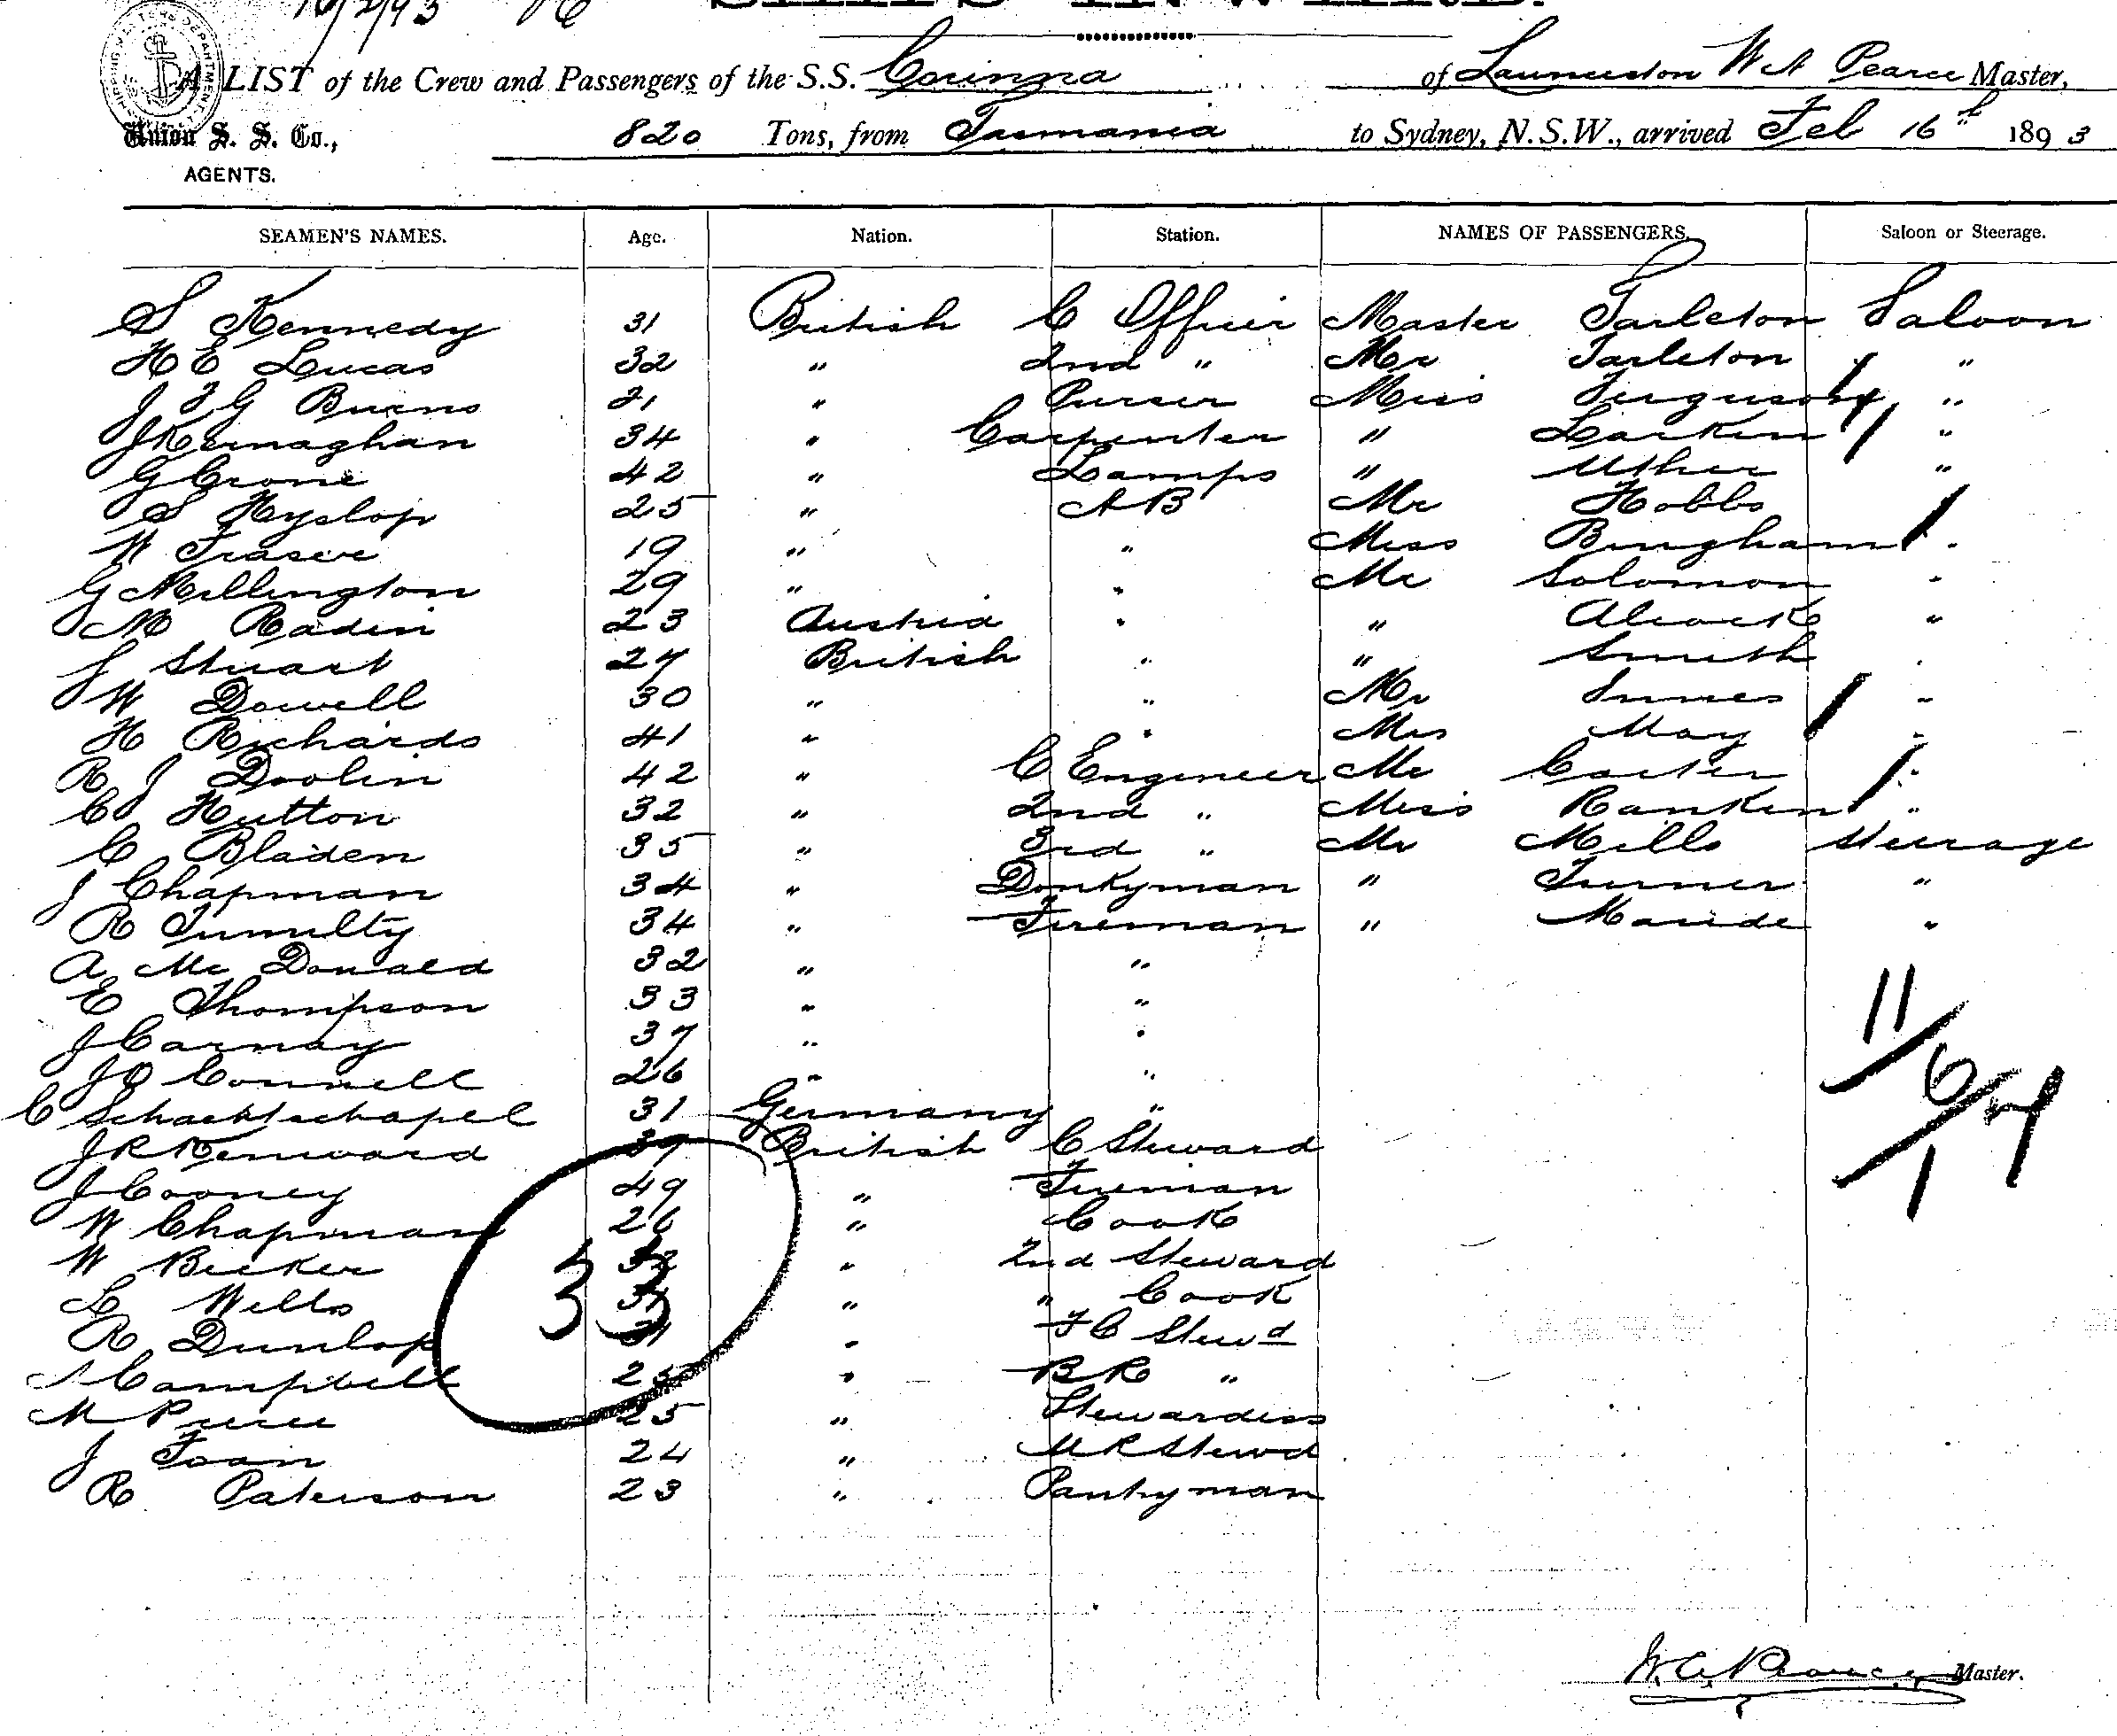 16/2/93
A LIST of the Crew and Passengers of the S.S. Corinna of Launceston W A Pearce Master,
Union S. S. Co., 820 Tons, from Tasmania to Sydney, N.S.W., arrived Feb 16th 1893
AGENTS.
SEAMEN'S NAMES. Age. Nation. Station. NAMES OF PASSENGERS. Saloon or Steerage.
S Kennedy 31 British C Officer Master Tarleton Saloon
H E Lucas 32 " 2nd " Mr Tarleton "
J F G Burns 21 " Purser Miss Ferguson "
J Kernaghan 34 " Carpenter " Larkin "
G Crone 42 " Lamps " Uther "
S Hyslop 25 " AB Mr Hobbs
W Fraser 19 " " Miss Bingham "
G Millington 29 " " Mr Solomon "
M Radin 23 Austria " " Alcock "
J Stuart 27 British " " Smith "
W Dowell 30 " " Mr Innes "
H Richards 41 " " Mrs May "
R J Doolin 42 " C Engineer Mr Carter "
C Hutton 32 " 2nd " Miss Rankin "
C Bladen 35 " 3rd " Mr Mills Steerage
J Chapman 34 " Donkyman " Turner "
R Tumulty 34 " Fireman " Maude "
A Mc Donald 32 " "
E Thompson 33 " "
J Carnay 37 " "
J O Connell 26 " "
C Schachtschapel 31 Germany "
J R Kenward 39 British C Steward
J Cooney 49 " Fireman
W Chapman 26 " Cook
W Becker 32 " 2nd Steward
L Wells " " Cook
R Dunlop " F C Stewd
Campbell 25 " B R "
M Pierce 25 " Stewardess
J Foan 24 " M R Stewd
R Paterson 23 " Pantryman
33
11/6/1
W. A. Pearce Master.